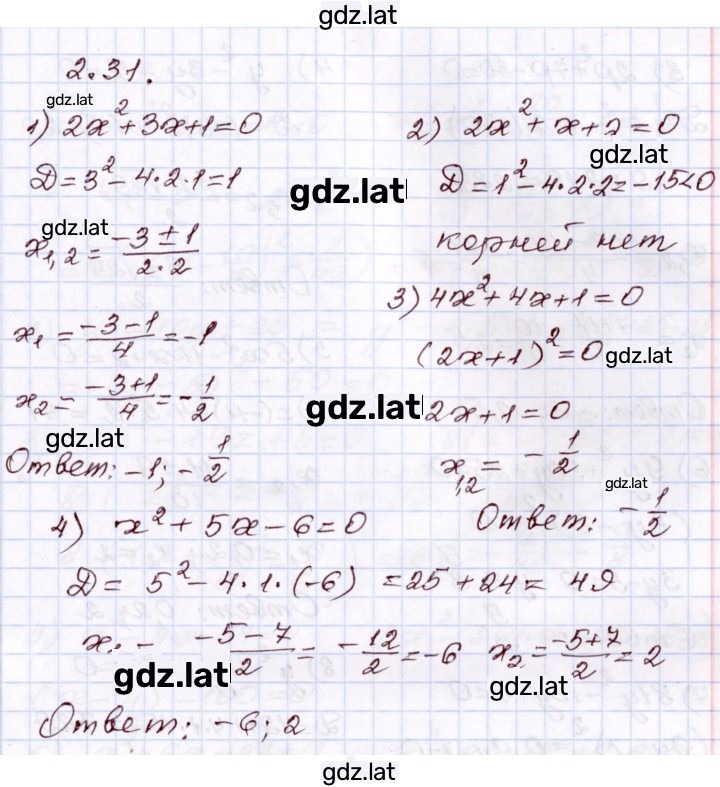 gdz.lat
2.31.
gdz.lat
1) 2x²+3x+1=0
D=3²-4·2·1=1
gdz.lat
gdz.lat
x₁,₂ = (-3±1)/(2·2)
x₁ = (-3-1)/4 = -1
x₂ = (-3+1)/4 = -1/2
gdz.lat
gdz.lat
Ответ: -1; -1/2
2) 2x²+x+2=0
gdz.lat
D=1²-4·2·2=-15<0
корней нет
3) 4x²+4x+1=0
(2x+1)²=0
gdz.lat
2x+1=0
x₁,₂ = -1/2
gdz.lat
Ответ: -1/2
4) x²+5x-6=0
D= 5²-4·1·(-6) =25+24= 49
x. - (-5-7)/2 = -12/2 = -6 x₂ = (-5+7)/2 = 2
gdz.lat
gdz.lat
Ответ: -6; 2
gdz.lat